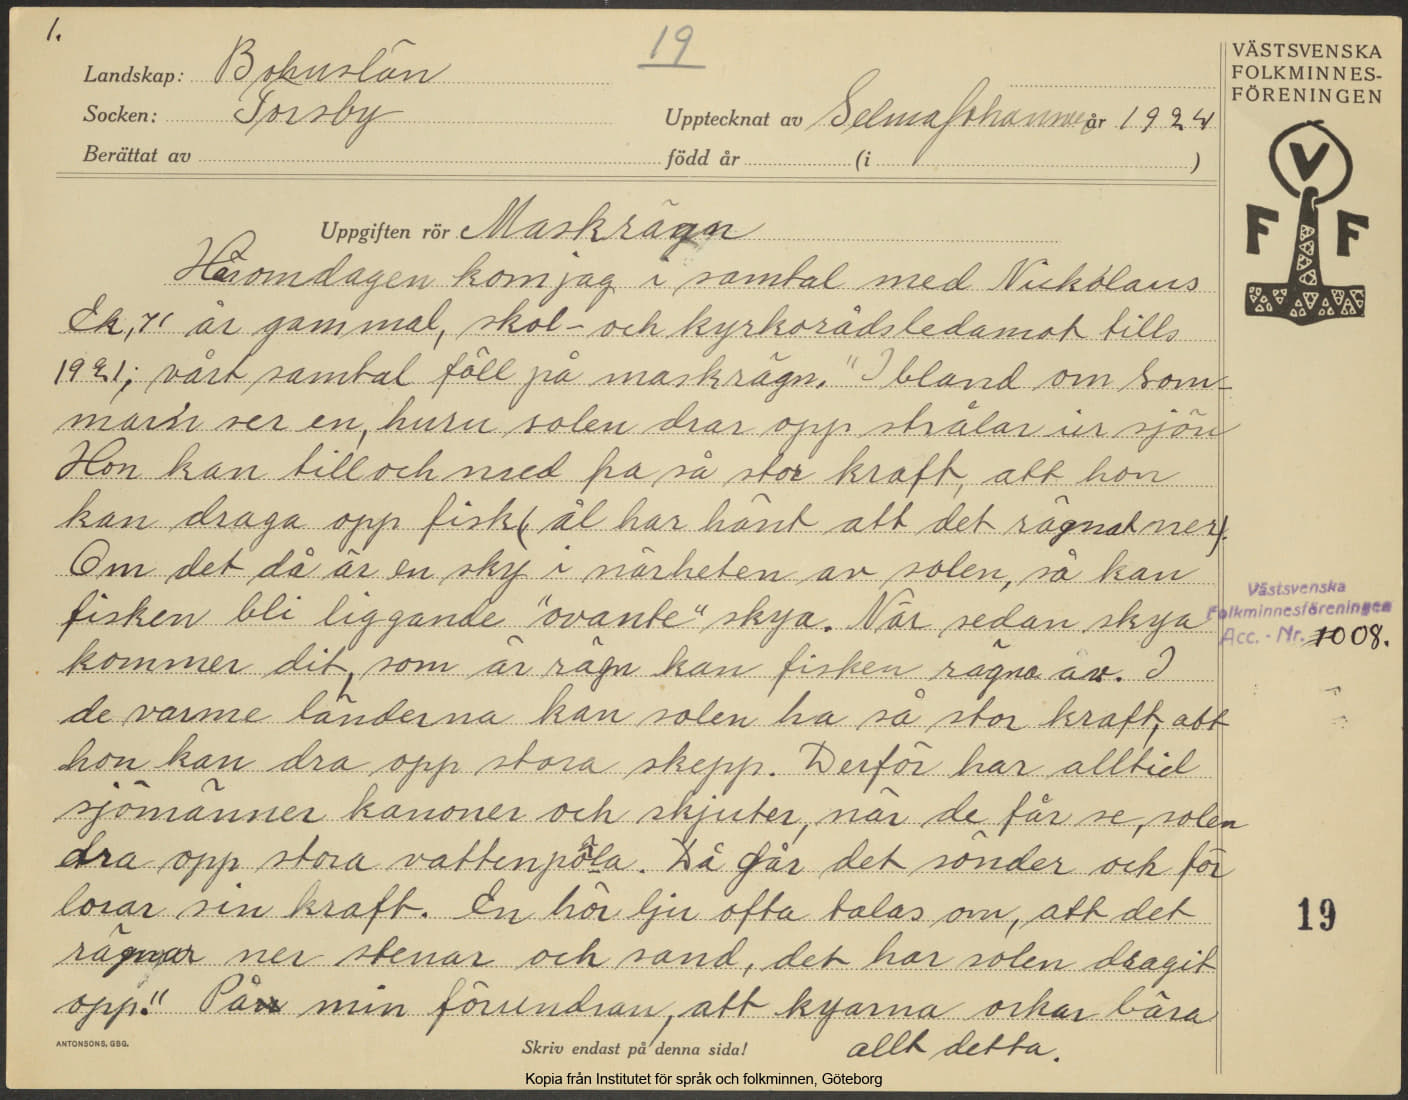 1.
19
Landskap: Bohuslän
Socken: Torsby
Upptecknat av Selma Johannes år 1924
Berättat av född år (i )
VÄSTSVENSKA
FOLKMINNES-
FÖRENINGEN
V
F F
Uppgiften rör Maskrägn
Häromdagen kom jag i samtal med Nickolaus
Ek, 71 år gammal, skol- och kyrkorådsledamot tills
1921; vårt samtal föll på maskrägn. "Ibland om som-
mar'n ser en, huru solen drar opp strålar ur sjön
Hon kan till och med ha så stor kraft, att hon
kan draga opp fisk (ål har hänt att det rägnat ner).
Om det då är en sky i närheten av solen, så kan
fisken bli liggande "ovante" skya. När sedan skya
kommer dit, som är rägn kan fisken rägna äv. I
de varme länderna kan solen ha så stor kraft, att
hon kan dra opp stora skepp. Derför har alltid
sjömänner kanoner och skjuter, när de får se, solen
dra opp stora vattenpöla. Då går det sönder och för
lorar sin kraft. En hör lju ofta talas om, att det
rägnar ner stenar och sand, det har solen dragit
opp." På min förundran, att kyarna orkar bära
allt detta.
Västsvenska
Folkminnesföreningen
Acc. - Nr. 1008.
19
ANTONSONS, GBG.
Skriv endast på denna sida!
Kopia från Institutet för språk och folkminnen, Göteborg